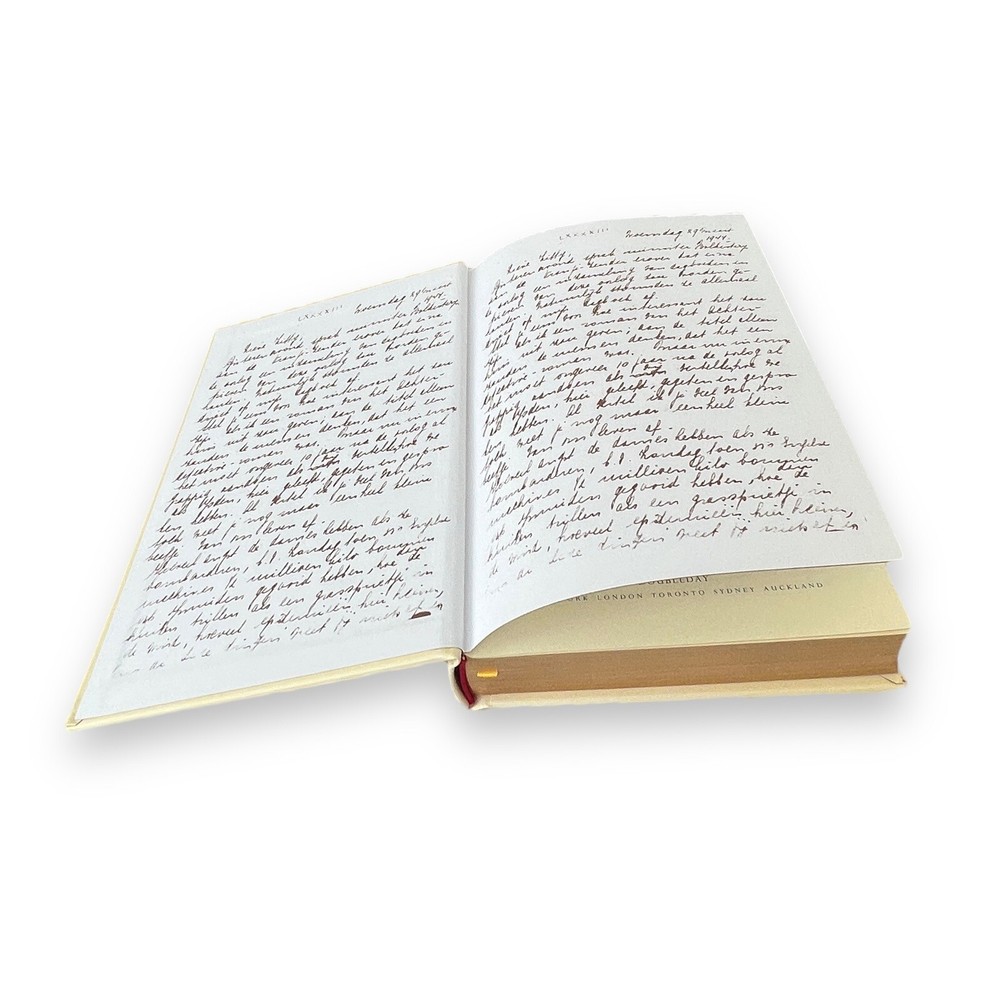 LXXXXIII
Woensdag 29 Maart
1944.
Lieve Kitty,
Gisteren avond sprak minister Bolkesteyn
aan de Oranje-Zender erover dat er na
de oorlog een inzameling van dagboeken en
brieven van deze oorlog zou worden ge-
houden. Natuurlijk stormden ze allemaal
direct op mijn dagboek af.
Stel je eens voor hoe interessant het zou
zijn als ik een roman van het Achter-
huis uit zou geven; aan de titel alleen
zouden de mensen denken, dat het een
detective-roman was. Maar nu in ernst
het moet ongeveer 10 jaar na de oorlog al
grappig aandoen als wij vertellen hoe we
als Joden, hier geleefd, gegeten en gespro
ken hebben. Al vertel ik je veel van ons
toch weet je nog maar een heel klein
beetje van ons leven af.
Hoeveel angst de dames hebben als ze
bombarderen, b.v. Zondag toen 350 Engelse
machines ½ millioen kilo bommen
op Ymuiden gegooid hebben, hoe dan de
huizen trillen als een grassprietje in
de wind, hoeveel epidemieën hier heersen,
van al deze dingen weet jij niets af en
LXXXXIII
Woensdag 29 Maart
1944.
Lieve Kitty,
Gisteren avond sprak minister Bolkesteyn
aan de Oranje-Zender erover dat er na
de oorlog een inzameling van dagboeken en
brieven van deze oorlog zou worden ge-
houden. Natuurlijk stormden ze allemaal
direct op mijn dagboek af.
Stel je eens voor hoe interessant het zou
zijn als ik een roman van het Achter-
huis uit zou geven; aan de titel alleen
zouden de mensen denken, dat het een
detective-roman was. Maar nu in ernst
het moet ongeveer 10 jaar na de oorlog al
grappig aandoen als wij vertellen hoe we
als Joden, hier geleefd, gegeten en gespro
ken hebben. Al vertel ik je veel van ons
toch weet je nog maar een heel klein
beetje van ons leven af.
Hoeveel angst de dames hebben als ze
bombarderen, b.v. Zondag toen 350 Engelse
machines ½ millioen kilo bommen
op Ymuiden gegooid hebben, hoe dan de
huizen trillen als een grassprietje in
de wind, hoeveel epidemieën hier heersen,
van al deze dingen weet jij niets af en
DOUBLEDAY
RK LONDON TORONTO SYDNEY AUCKLAND